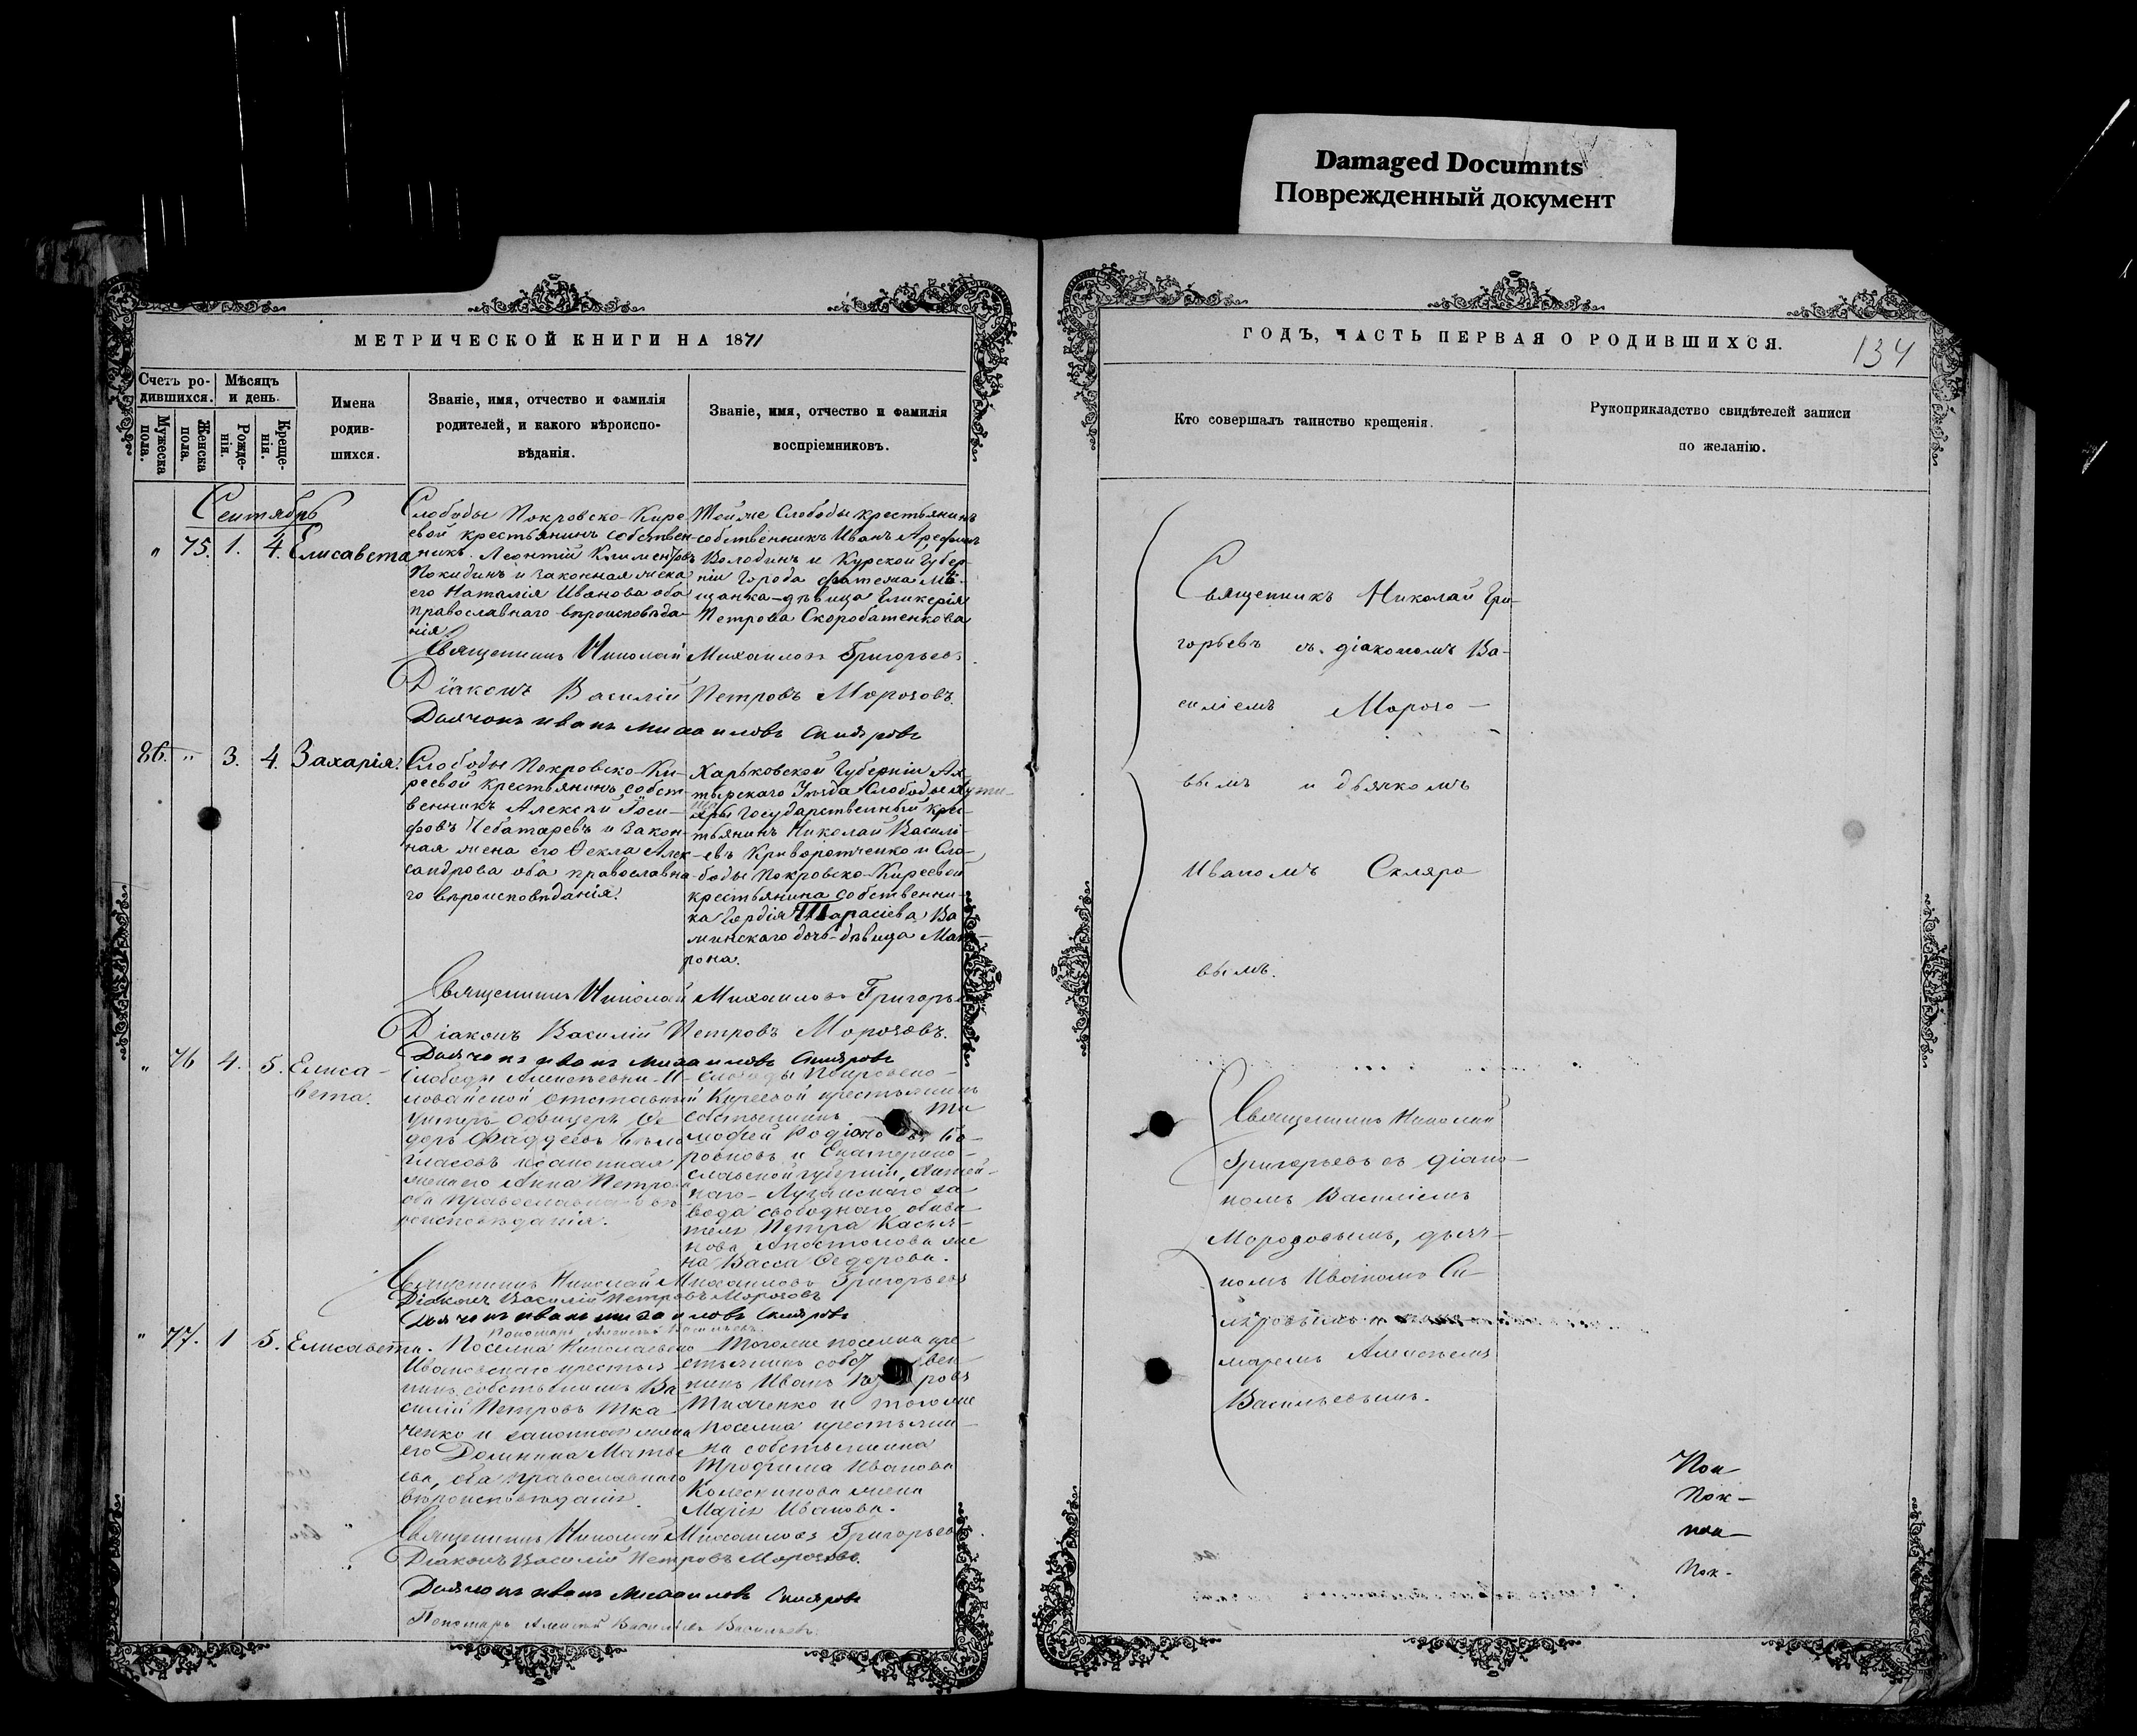 Damaged Documnts
Поврежденный документ
МЕТРИЧЕСКОЙ КНИГИ НА 1871
Счетъ ро-
дившихся.
Мѣсяцъ
и день.
Мужеска
пола.
Женска
пола.
Рожде-
нія.
Креще-
нія.
Имена
родив-
шихся.
Званіе, имя, отчество и фамилія
родителей, и какого вѣроиспо-
вѣданія.
Званіе, имя, отчество и фамилія
воспріемниковъ.
Сентябрь
" 75. 1. 4. Елисавета
Слободы Покровско-Кире-
евой крестьянинъ собствен-
никъ Леонтій Климентовъ
Покидинъ и законная жена
его Наталія Иванова оба
православнаго вѣроисповѣда-
нія.
Тойже Слободы крестьянинъ
собственникъ Иванъ Арефьевъ
Володинъ и Курской Губер-
ніи Города Фатежа Мѣ-
щанка-дѣвица Гликерія
Петрова Скоробатенкова
Священникъ Николай Михаиловъ Григорьевъ.
Діаконъ Василій Петровъ Морозовъ.
Дьячокъ иванъ михаиловъ Скляровъ
86. " 3. 4. Захарія.
Слободы Покровско-Ки-
реевой крестьянинъ собст-
венникъ Алексѣй Іоси-
фовъ Чебатаревъ и закон-
ная жена его Ѳекла Алек-
сандрова оба православна-
го вѣроисповѣданія.
Харьковской Губерніи Ах-
тырскаго Уѣзда Слободы
Государственный крес-
тьянинъ Николай Василі-
евъ Криворотченко и Сло-
боды Покровско-Киреевой
крестьянина собственни-
ка Тарасіева Ва
минскаго дочь-дѣвица Мат-
рона.
Священникъ Николай Михаиловъ Григорье
Діаконъ Василій Петровъ Морозовъ.
Дьячокъ иванъ михаиловъ Скляровъ
" 76 4. 5. Елиса-
вета.
Слободы Алексѣевки-
отставной
Унтеръ Офицеръ Ѳе
доръ Фаддеевъ Бѣло
гласовъ и законная
жена его Анна Петрова
оба православнаго вѣ
роисповѣданія.
Слободы Покровско-
Киреевой крестьянинъ
собственникъ Ти
мофей Родіоновъ Бо-
ровковъ и Екатерино-
славской губерніи,
наго-Луганскаго за
вода свободнаго обыва
теля Петра Касья-
нова Апостолова же
на Васса Ѳедорова.
Священникъ Николай Михаиловъ Григорьевъ
Діаконъ Василій Петровъ Морозовъ
Дьячокъ иванъ михаиловъ Скляровъ
Пономарь Алексѣй Васильевъ.
" 77. 1 5. Елисавета.
Поселка Николаевско
Ивановскаго крестья
нинъ собственникъ Ва
силій Петровъ Тка
ченко и законная жена
его Домникія Матве
ева, оба православнаго
вѣроисповѣданія.
Тогоже поселка кре
стьянинъ собствен
никъ Иванъ
Ткаченко и тогоже
поселка крестьяни
на собственника
Трофима Иванова
Колесникова жена
Марія Иванова.
Священникъ Николай Михаиловъ Григорьевъ.
Діаконъ Василій Петровъ Морозовъ.
Дьячокъ иванъ михаиловъ Скляровъ
Пономарь Алексѣй Васильевъ.
ГОДЪ, ЧАСТЬ ПЕРВАЯ О РОДИВШИХСЯ.
134
Кто совершалъ таинство крещенія.
Рукоприкладство свидѣтелей записи
по желанію.
Священникъ Николай Гри-
горьевъ съ діакономъ Ва-
силіемъ Морозо-
вымъ и дьячкомъ
Иваномъ Скляро
вымъ.
Священникъ Николай
Григорьевъ съ діако-
номъ Василіемъ
Морозовымъ, дьяч-
комъ Иваномъ Ск-
ляровымъ и
маремъ Алексѣемъ
Васильевымъ.
Пок-
Пок-
пок-
Пок-